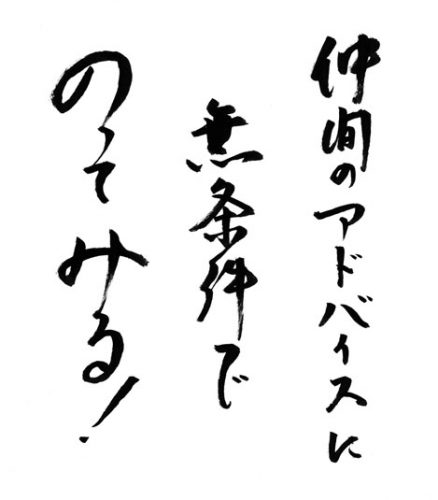 仲間のアドバイスに
無条件で
のってみる!